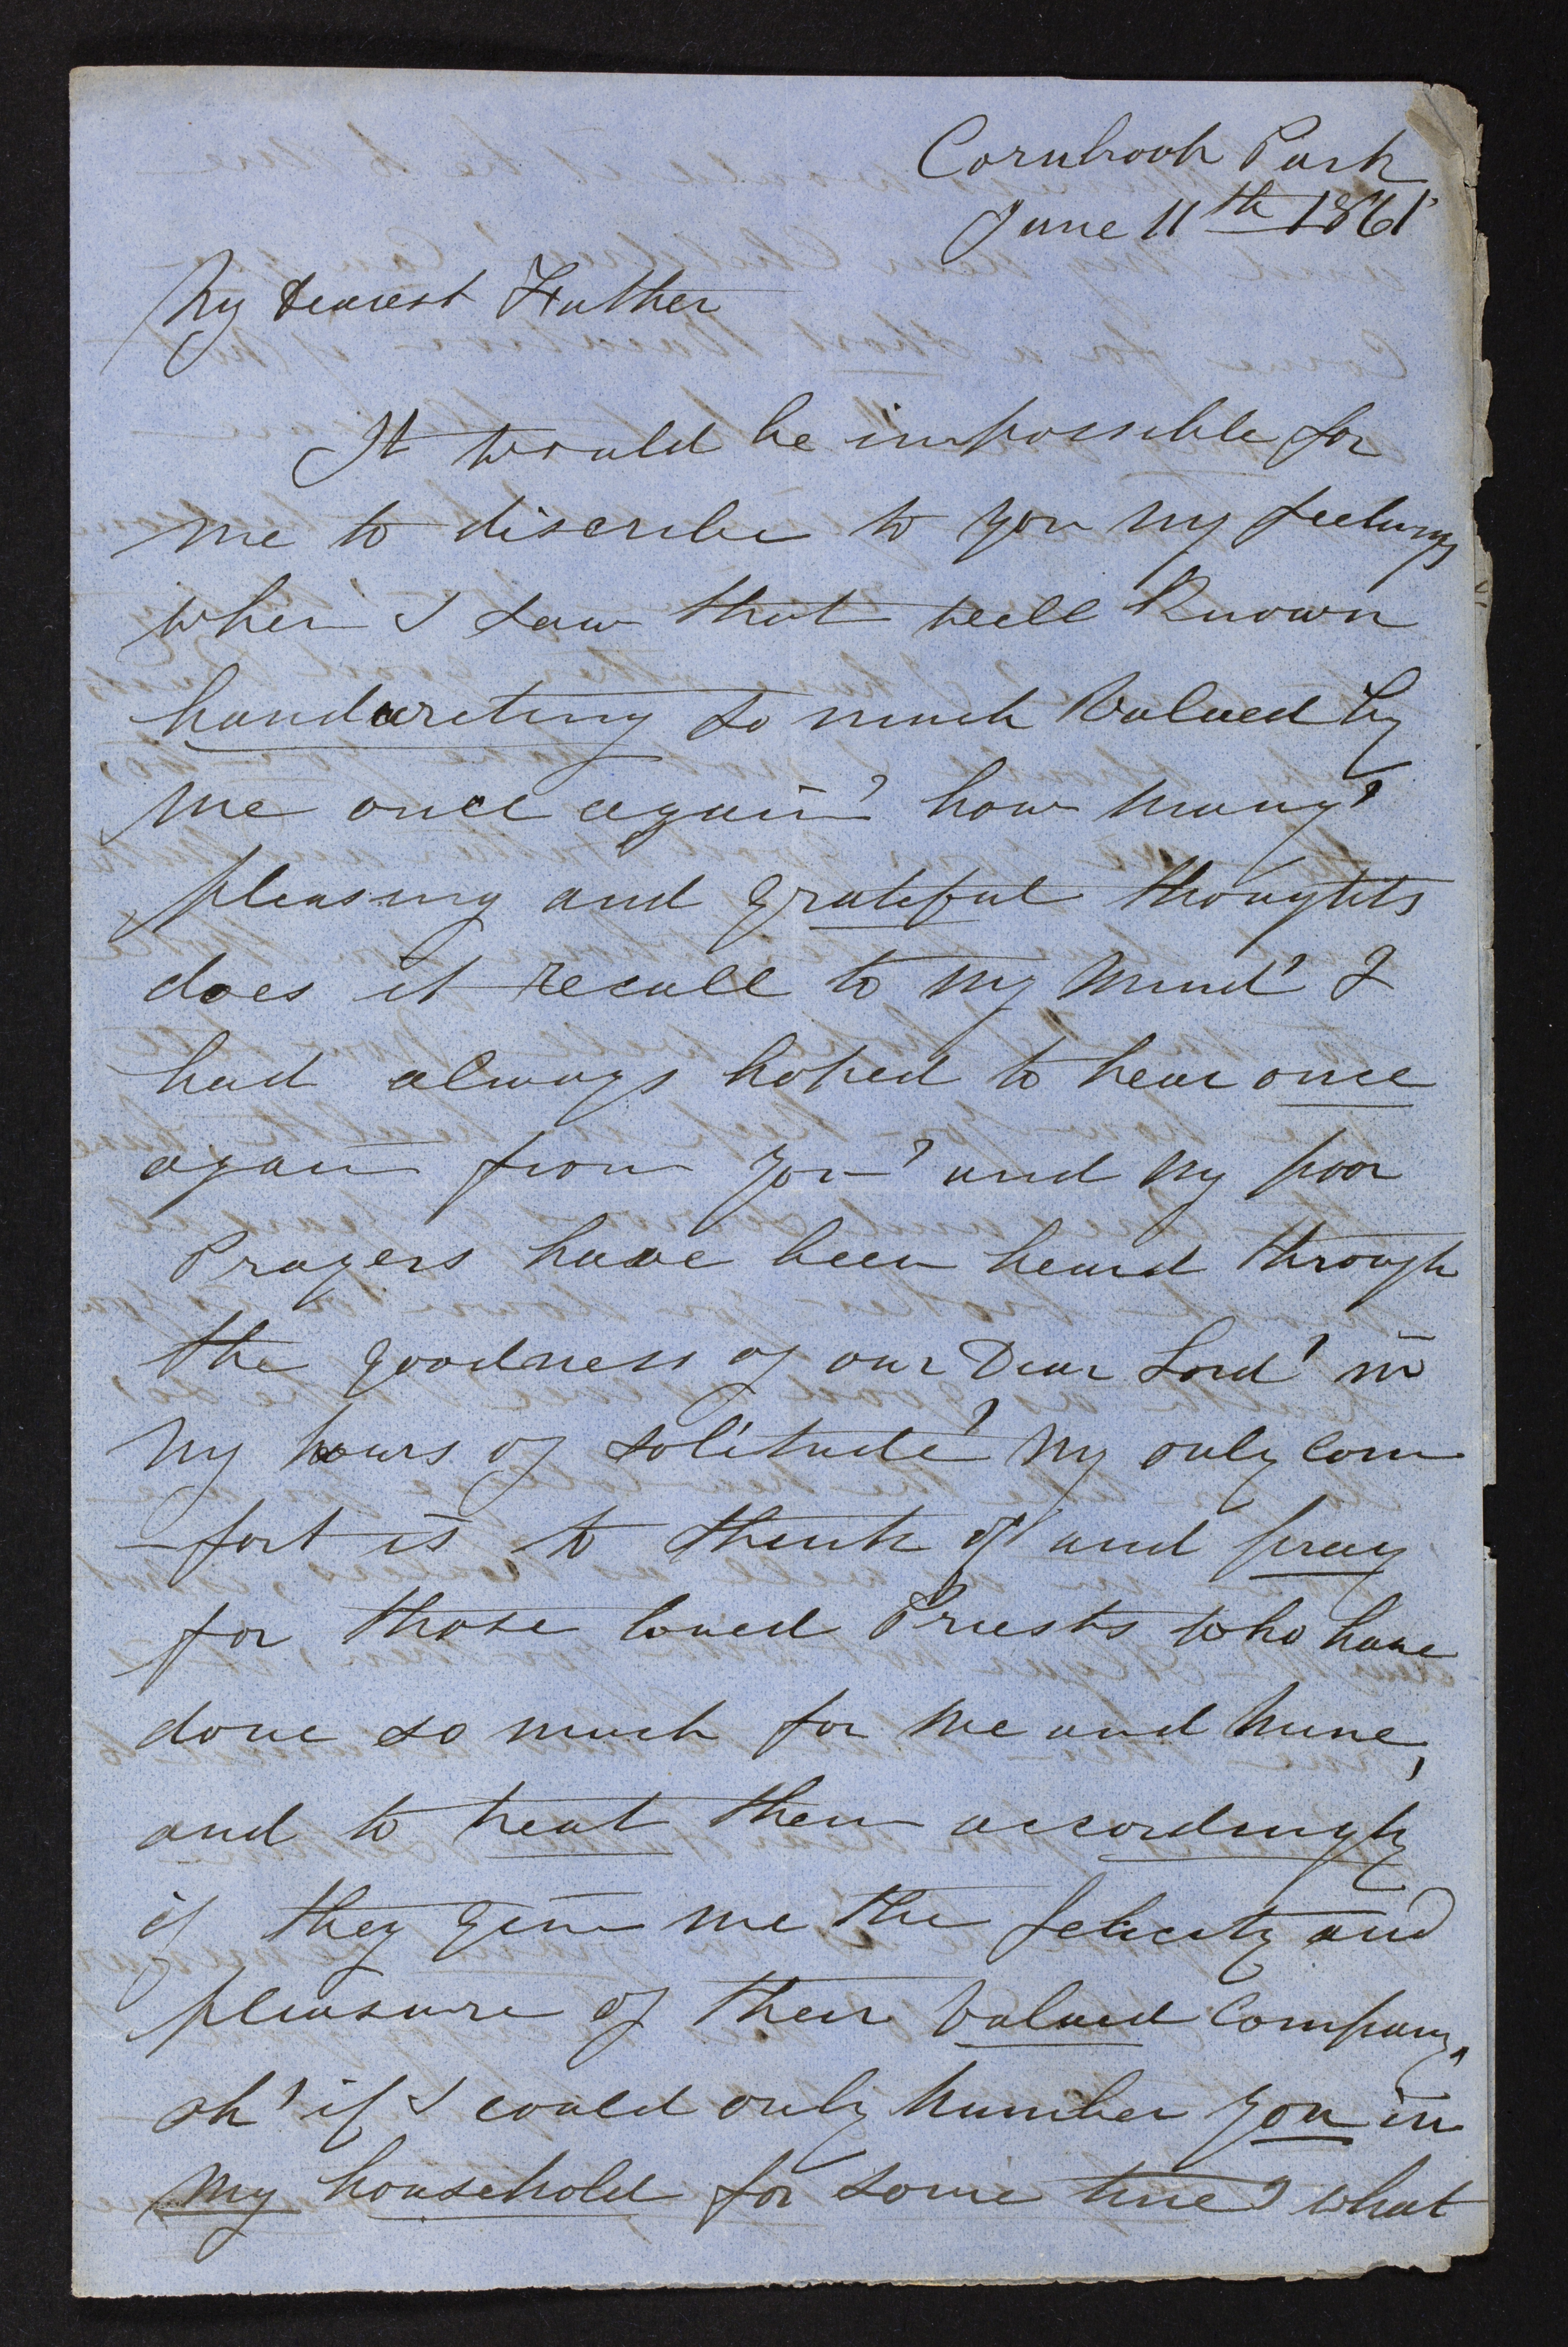 Cornbrook Park
June 11th 1861
My dearest Father
It would be impossible for
me to discribe to you my feelings
when I saw that well Known
handwreting so much Valued by
me once again' how many'
pleasing and grateful thoughts
does it recall to my mind' I
had always hoped to hear once
again from you' and my poor
Prayers have been heard through
the goodness of our Dear Lord' in
my hours of solitude' my only com
-fort is to think of' and pray
for those loved Priests who have
done so much for me and mine,
and to treat them accordingly
if they give me the felicity and
pleasure of their Valued Company,
oh' if I could only number you in
my household for some time' what